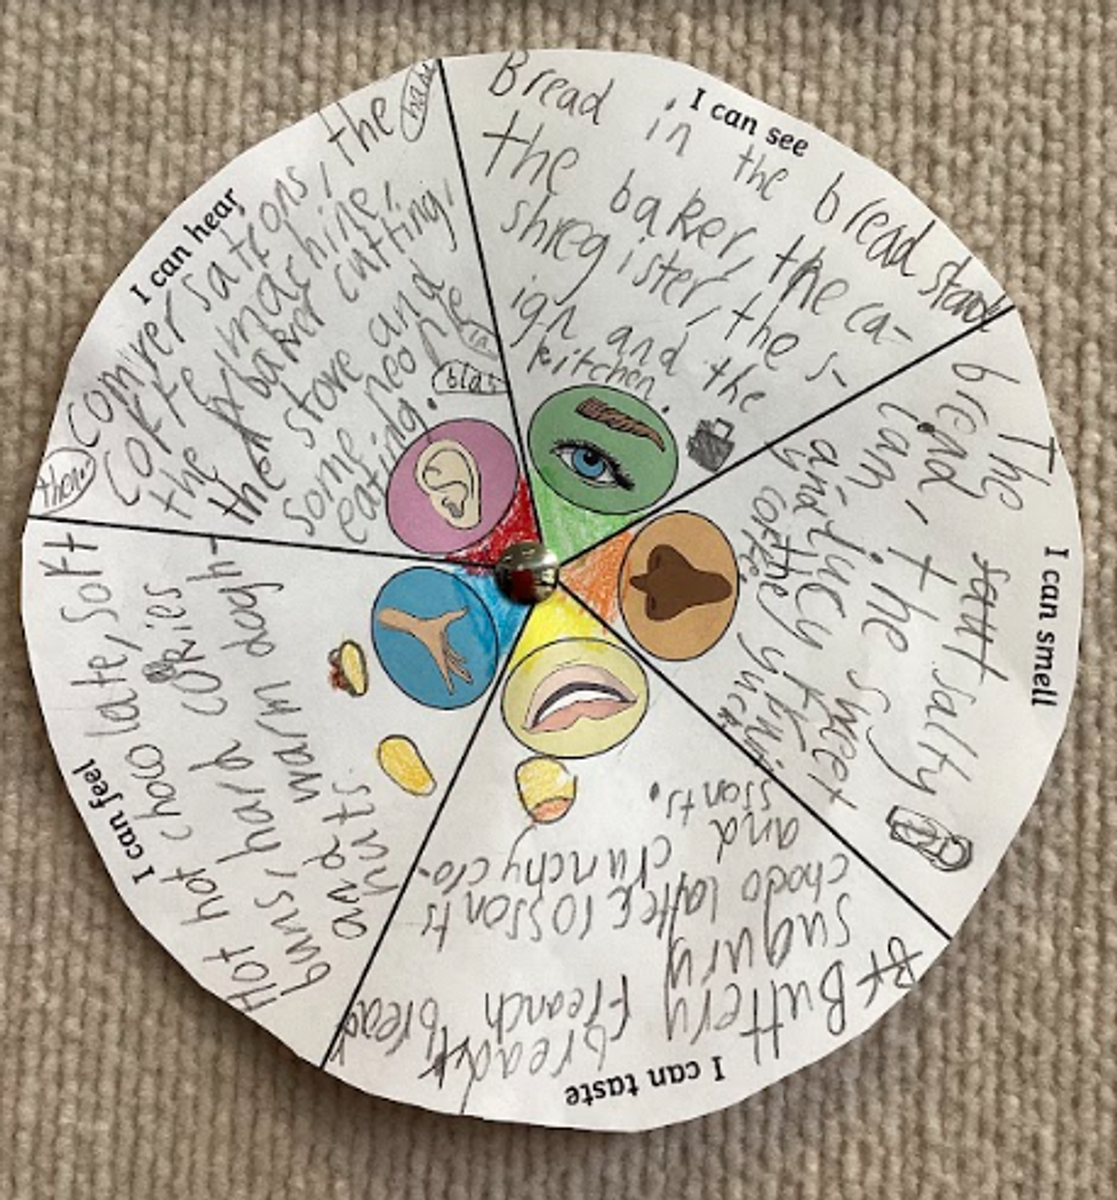 I can see
Bread in the bread stand
the baker, the ca-
shregister, the s-
ign and the
kitchen.
I can smell
The salty
bread, the sweet
jam, jucy
and the
coffie
I can taste
Buttery bread
sugury Freanch bread
choco late crossonts
and crunchy cro-
ssonts.
I can feel
Hot hot chocolate, soft
buns, hard cokies
and warm dogh-
nuts.
I can hear
conversations, the
coffe machine,
the baker cutting,
the store and
some neone
eating.